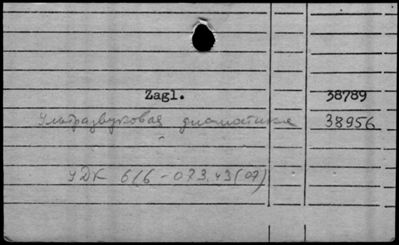 Zagl. 38789
Ультразвуковая диагностика 38956
УДК 616-073.43(07)